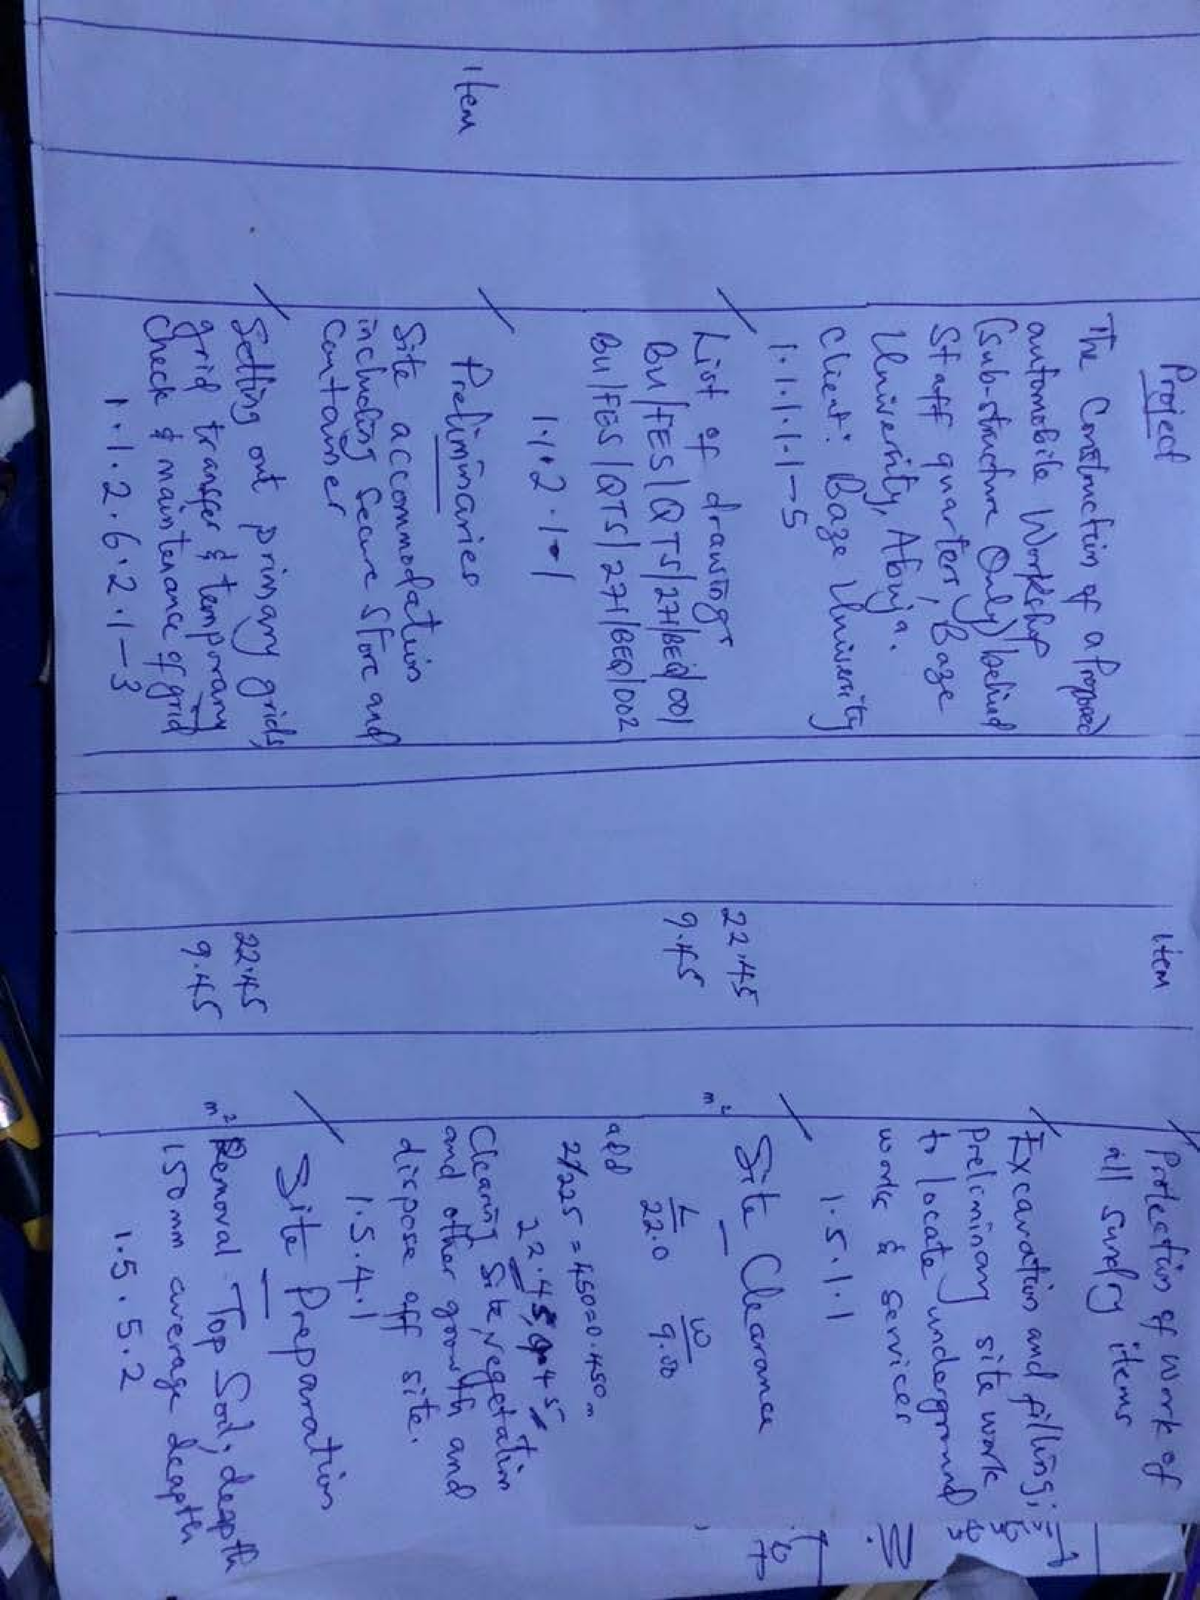 Project
The Construction of a Proposed
automobile Workshop
(sub-structure Only) behind
Staff quarters, Baze
University, Abuja.
Client: Baze University
1.1.1.1.1-5
List of drawings
BU/FES/QTS/271/BEQ/001
BU/FES/QTS/271/BEQ/002
1.1.2.1-1
item
Preliminaries
Site accommodation
including Secure Store and
Container
Setting out primary grids,
grid transfer & temporary
Check & maintenance of grid
1.1.2.6.2.1-3
item
Protection of work of
all sundry items
Excavation and filling;
Preliminary site work
to locate underground
works & services
1.5.1.1
Site Clearance
22.45
9.45
m2
L W
22.0 9.00
add
2/225 = 450=0.450m
22.45, 9.45
Clearing Site, vegetation
and other growth and
dispose off site.
1.5.4.1
Site Preparation
22.45
9.45
m2
Removal Top Soil; deapth
150mm average deapth
1.5.5.2